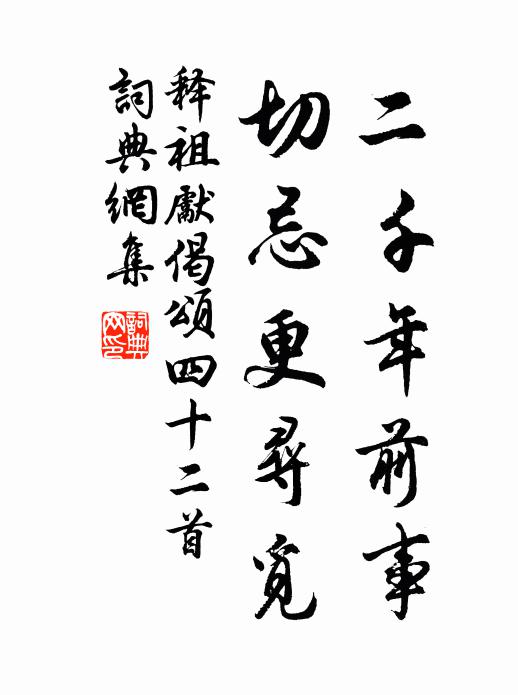 二千年前事
切忌更尋覓
释祖獻偈頌四十二首
詞典網集
詞典網印